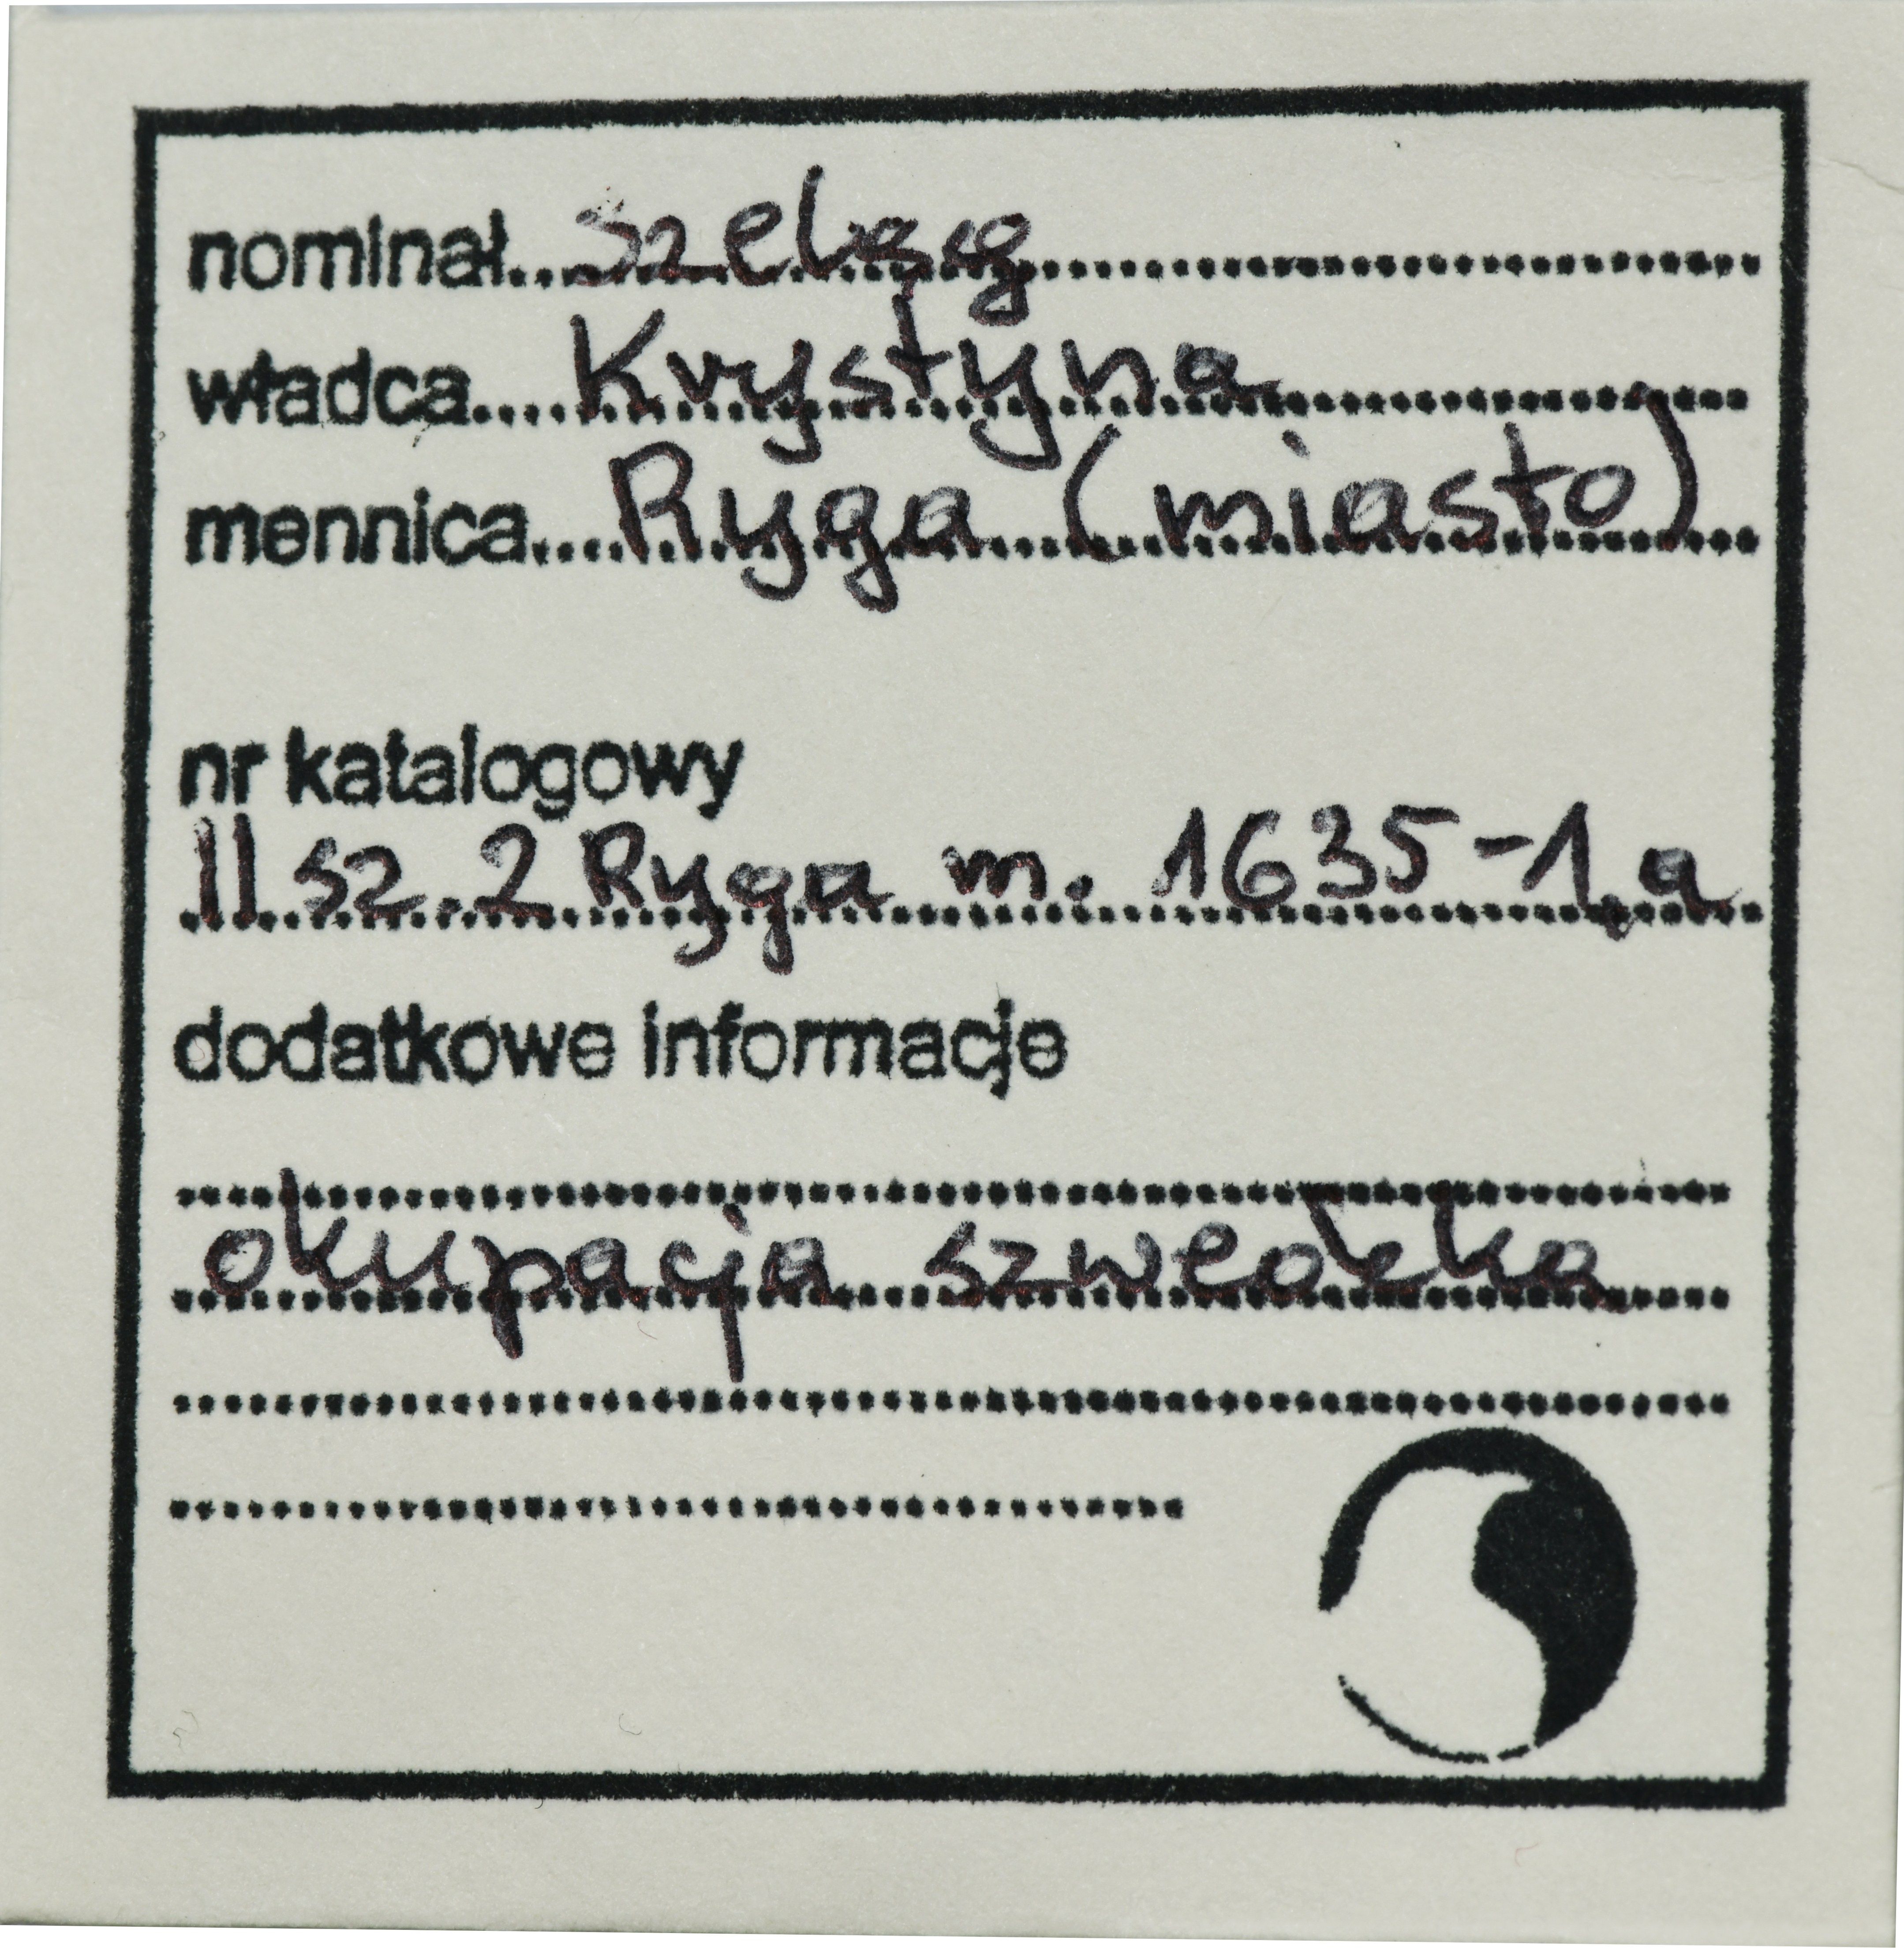 nominał szeląg
władca Krystyna
mennica Ryga (miasto)
nr katalogowy
II sz. 2 Ryga m. 1635-1,a
dodatkowe informacje
okupacja szwedzka